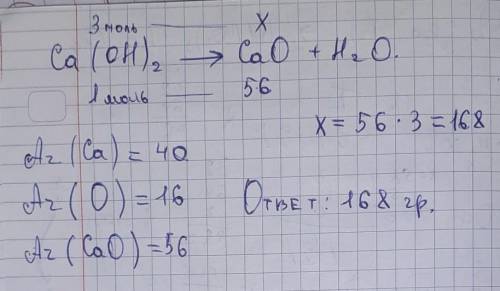 3 моль —— X
Ca(OH)₂ → CaO + H₂O.
1 моль —— 56
X = 56 · 3 = 168
Ar(Ca) = 40
Ar(O) = 16
Ответ: 168 гр.
Ar(CaO) = 56